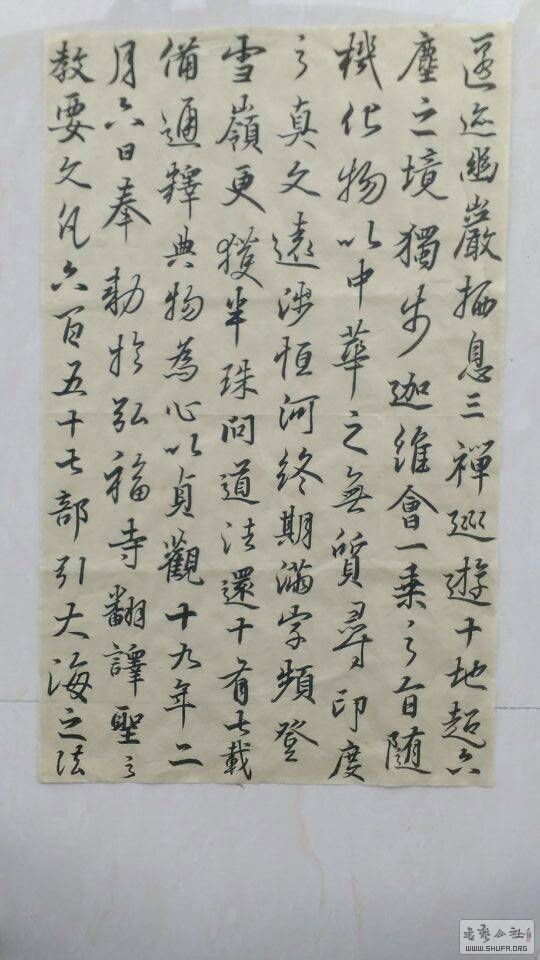 匿迹幽巖栖息三禪巡遊十地超六
塵之境獨步迦維會一乘之旨随
機化物以中華之無質尋印度
之真文遠涉恒河終期滿字頻登
雪嶺更獲半珠問道法還十有七載
備通釋典物為心以貞觀十九年二
月六日奉勅於弘福寺翻譯聖之
教要文凡六百五十七部引大海之法
WWW.SHUFA.ORG